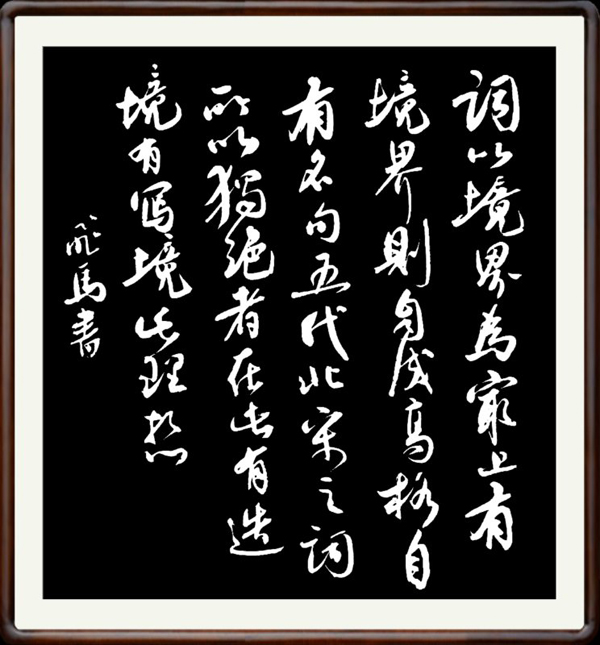 詞以境界為最上有
境界則自成高格自
有名句五代北宋之詞
所以獨絕者在此有造
境有寫境此理想
飛馬書